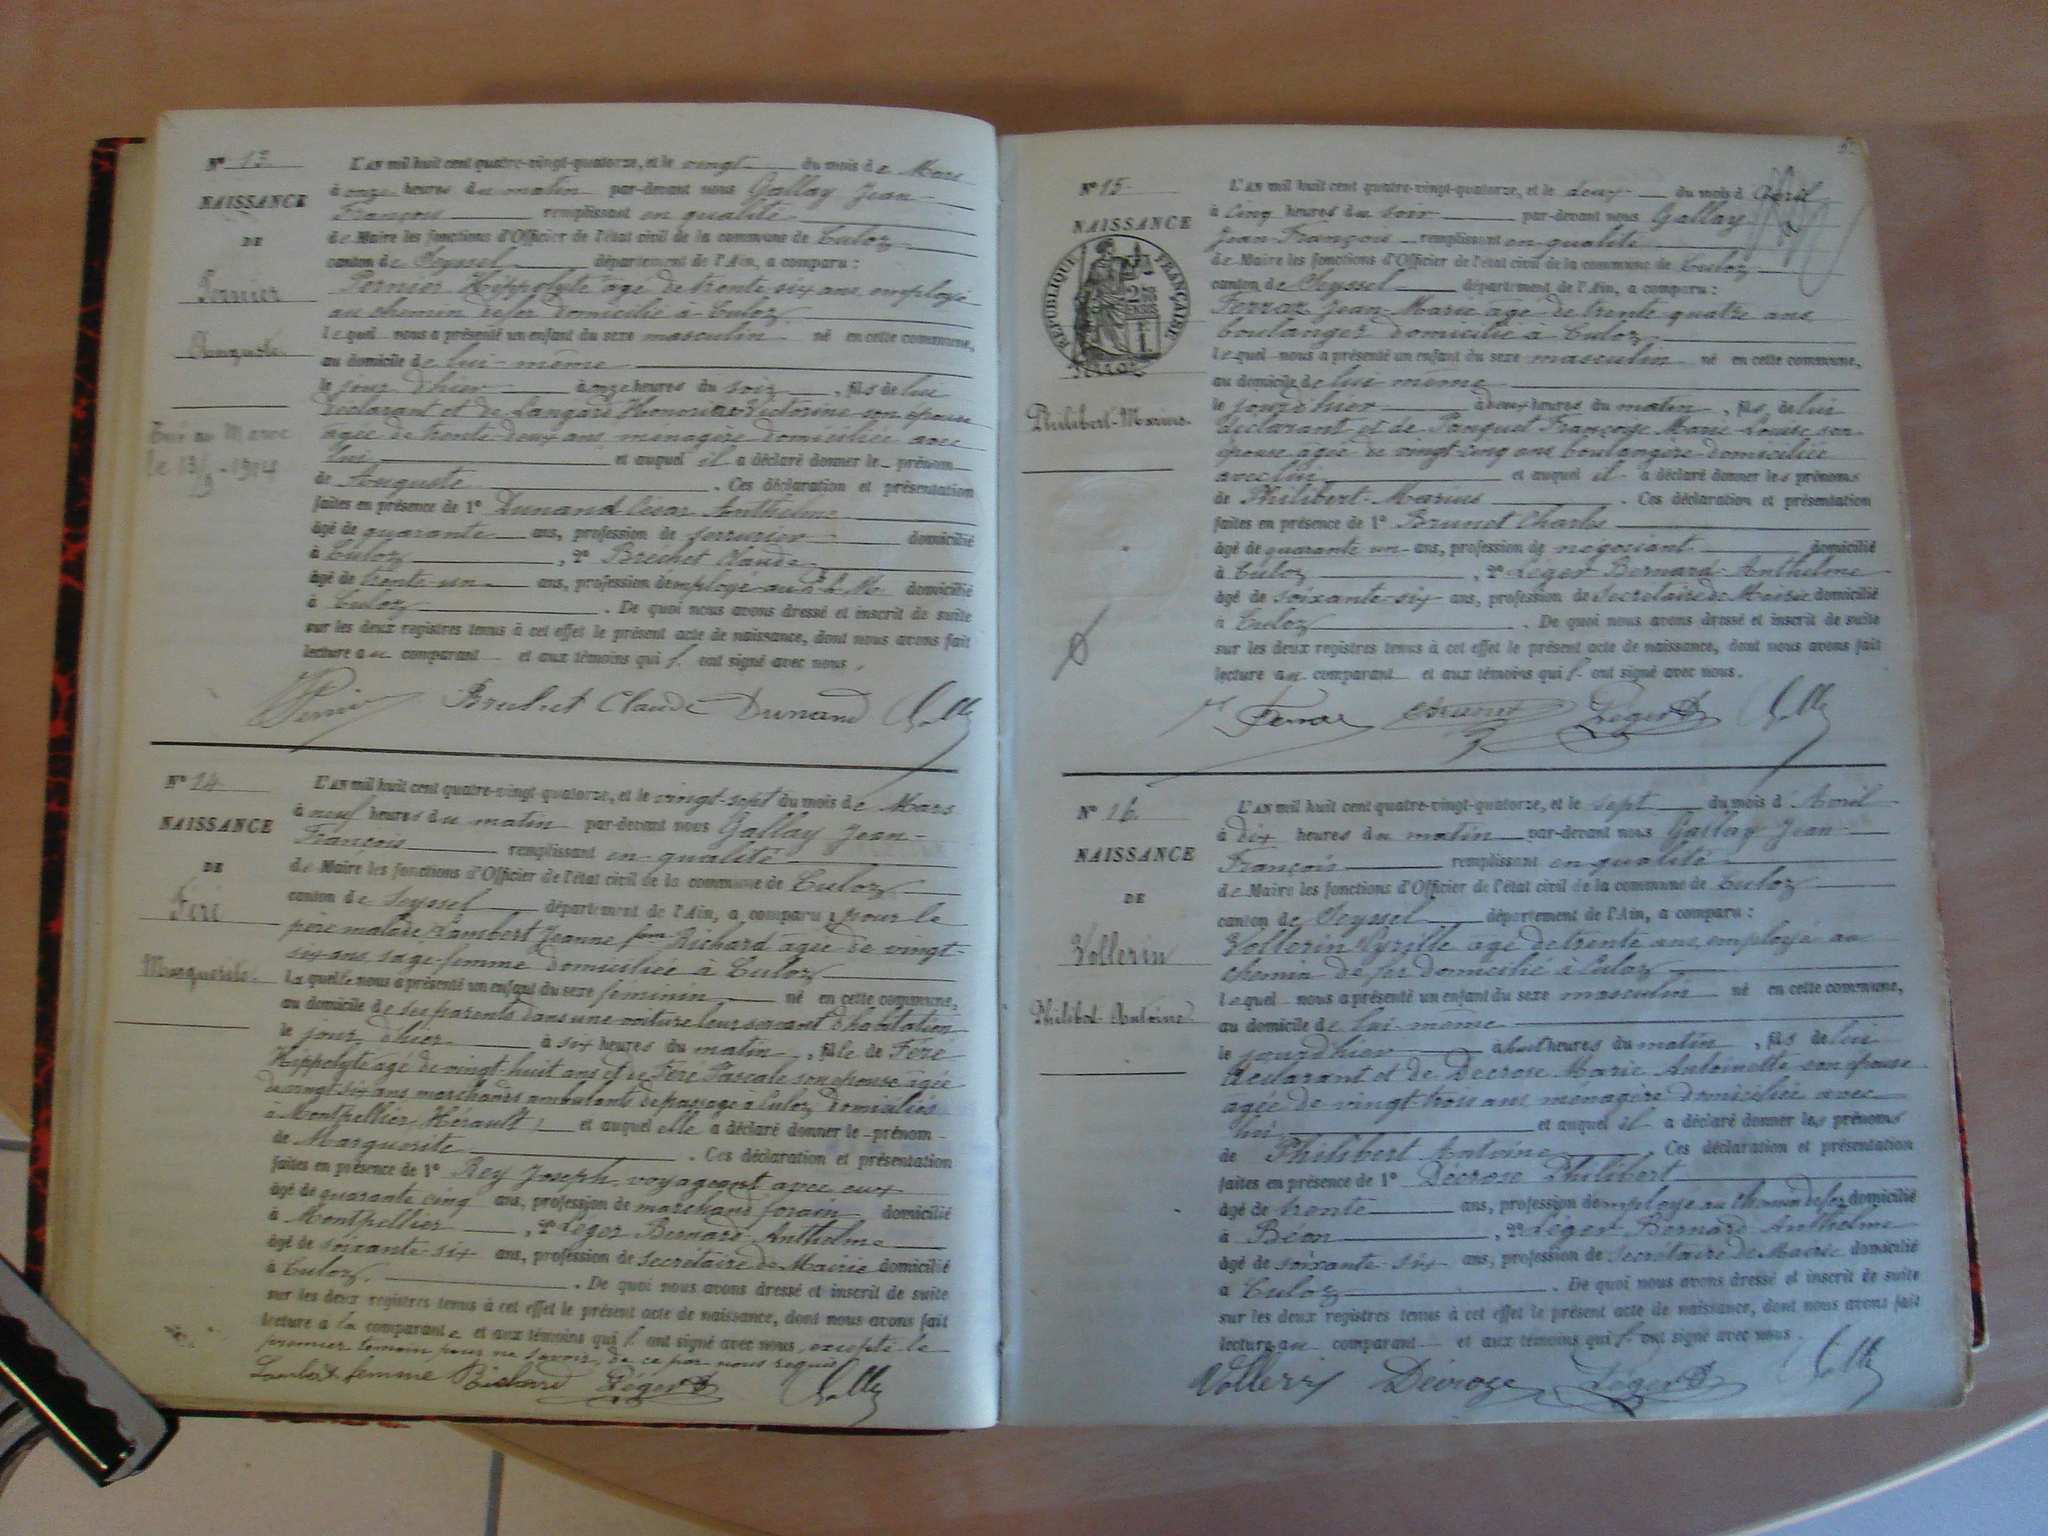 N° 13
NAISSANCE
DE
Pernier
Auguste
Tué au Maroc
le 13/9-1914
L'AN mil huit cent quatre-vingt-quatorze, et le vingt du mois de Mars
à onze heures du matin par-devant nous Gallay Jean-
François remplissant en qualité
de Maire les fonctions d'Officier de l'état civil de la commune de Culoz
canton de Seyssel département de l'Ain, a comparu :
Pernier Hippolyte âgé de trente six ans, employé
au chemin de fer domicilié à Culoz
lequel nous a présenté un enfant du sexe masculin né en cette commune,
au domicile de lui-même
le jour d'hier à onze heures du soir, fils de lui
déclarant et de Langard Victorine son épouse
âgée de trente-deux ans, ménagère domiciliée avec
lui et auquel il a déclaré donner le prénom
de Auguste. Ces déclaration et présentation
faites en présence de 1° Dunand César Anthelme
âgé de quarante ans, profession de serrurier domicilié
à Culoz, 2° Brechet Claude
âgé de trente-un ans, profession d'employé au P.L.M. domicilié
à Culoz. De quoi nous avons dressé et inscrit de suite
sur les deux registres tenus à cet effet le présent acte de naissance, dont nous avons fait
lecture au comparant et aux témoins qui l. ont signé avec nous.
Pernier Bruchet Claude Dunand Gallay
N° 14
NAISSANCE
DE
Féré
Marguerite
L'AN mil huit cent quatre-vingt-quatorze, et le vingt-sept du mois de Mars
à neuf heures du matin par-devant nous Gallay Jean-
François remplissant en qualité
de Maire les fonctions d'Officier de l'état civil de la commune de Culoz
canton de Seyssel département de l'Ain, a comparu pour le
père malade, Lambert Jeanne fem Richard âgée de vingt-
six ans sage-femme domiciliée à Culoz
Laquelle nous a présenté un enfant du sexe féminin né en cette commune,
au domicile de ses parents dans une voiture leur servant d'habitation
le jour d'hier à six heures du matin, fille de Féré
Hippolyte âgé de vingt-huit ans et de Féré Pascale son épouse âgée
de vingt-six ans marchands ambulants de passage à Culoz, domiciliés
à Montpellier (Hérault) et auquel elle a déclaré donner le prénom
de Marguerite. Ces déclaration et présentation
faites en présence de 1° Rey Joseph, voyageant avec eux
âgé de quarante cinq ans, profession de marchand forain domicilié
à Montpellier, 2° Léger Bernard Anthelme
âgé de soixante-six ans, profession de secrétaire de Mairie domicilié
à Culoz. De quoi nous avons dressé et inscrit de suite
sur les deux registres tenus à cet effet le présent acte de naissance, dont nous avons fait
lecture à la comparante et aux témoins qui l. ont signé avec nous, excepté le
premier témoin pour ne savoir, de ce par nous requis
Lambert femme Richard Léger B Gallay
N° 15
NAISSANCE
RÉPUBLIQUE FRANÇAISE
Ferraz
Philibert-Marius
L'AN mil huit cent quatre-vingt-quatorze, et le deux du mois d Avril
à cinq heures du soir par-devant nous Gallay
Jean-François remplissant en qualité
de Maire les fonctions d'Officier de l'état civil de la commune de Culoz
canton de Seyssel département de l'Ain, a comparu :
Ferraz Jean-Marie âgé de trente quatre ans
boulanger domicilié à Culoz
lequel nous a présenté un enfant du sexe masculin né en cette commune,
au domicile de lui même
le jour d'hier à deux heures du matin, fils de lui
déclarant et de Panquet Françoise Marie Louise son
épouse âgée de vingt-cinq ans boulangère domiciliée
avec lui et auquel il a déclaré donner les prénoms
de Philibert-Marius. Ces déclaration et présentation
faites en présence de 1° Brunet Charles
âgé de quarante un ans, profession de négociant domicilié
à Culoz, 2° Léger Bernard-Anthelme
âgé de soixante-six ans, profession de Secrétaire de Mairie domicilié
à Culoz. De quoi nous avons dressé et inscrit de suite
sur les deux registres tenus à cet effet le présent acte de naissance, dont nous avons fait
lecture au comparant et aux témoins qui l. ont signé avec nous.
Ferraz Brunet Léger B Gallay
N° 16
NAISSANCE
DE
Vollerin
Philibert Antoine
L'AN mil huit cent quatre-vingt-quatorze, et le sept du mois d'Avril
à dix heures du matin par-devant nous Gallay Jean-
François remplissant en qualité
de Maire les fonctions d'Officier de l'état civil de la commune de Culoz
canton de Seyssel département de l'Ain, a comparu :
Vollerin Cyrille âgé de trente ans, employé au
chemin de fer domicilié à Culoz
lequel nous a présenté un enfant du sexe masculin né en cette commune,
au domicile de lui-même
le jour d'hier à huit heures du matin, fils de lui
déclarant et de Decrose Marie Antoinette son épouse
âgée de vingt trois ans ménagère domiciliée avec
lui et auquel il a déclaré donner les prénoms
de Philibert Antoine. Ces déclaration et présentation
faites en présence de 1° Décrose Philibert
âgé de trente ans, profession d'employé au chemin de fer domicilié
à Béon, 2° Léger Bernard Anthelme
âgé de soixante-six ans, profession de Secrétaire de Mairie domicilié
à Culoz. De quoi nous avons dressé et inscrit de suite
sur les deux registres tenus à cet effet le présent acte de naissance, dont nous avons fait
lecture au comparant et aux témoins qui l. ont signé avec nous.
Vollerin Décroze Léger B Gallay